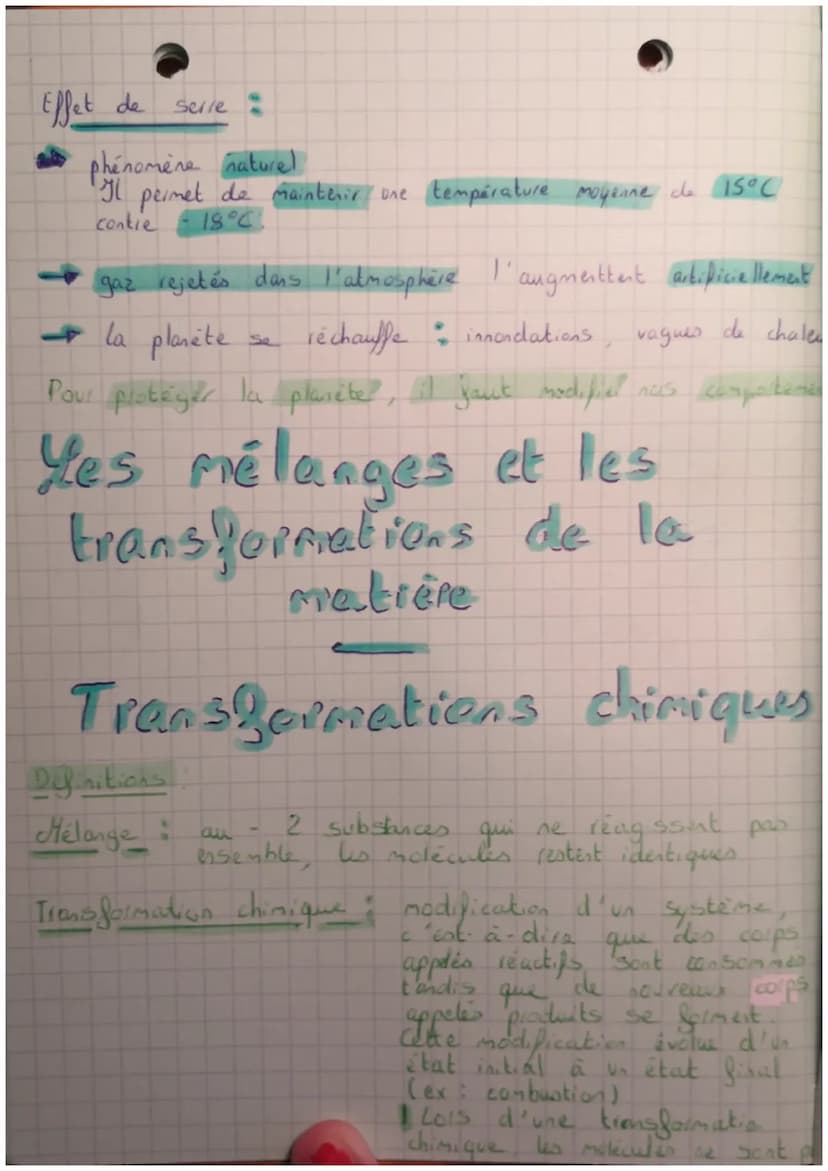 Effet de serre :
→ phénomène naturel
Il permet de maintenir une température moyenne de 15°C
contre - 18°C.
→ gaz rejetés dans l'atmosphère l'augmenttent artificiellement
→ la planète se réchauffe : innondations, vagues de chaleu
Pour protéger la planète, il faut modifier nos comporteme
Les mélanges et les
transformations de la
matière
Transformations chimiques
Définitions :
Mélange : au - 2 substances qui ne réagissent pas
ensemble, les molécules restent identiques
Transformation chimique : modification d'un système,
c'est-à-dire que des corps
appelés réactifs sont consommés
tandis que de nouveaux corps
appelés produits se forment.
Cette modification évolue d'un
état initial à un état final
(ex : combustion)
! Lors d'une transformatio
chimique, les molécules ne sont p